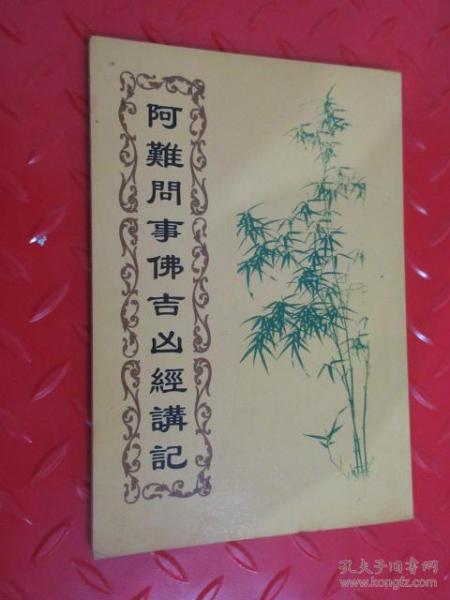 阿難問事佛吉凶經講記
孔夫子旧书网
www.kongfz.com